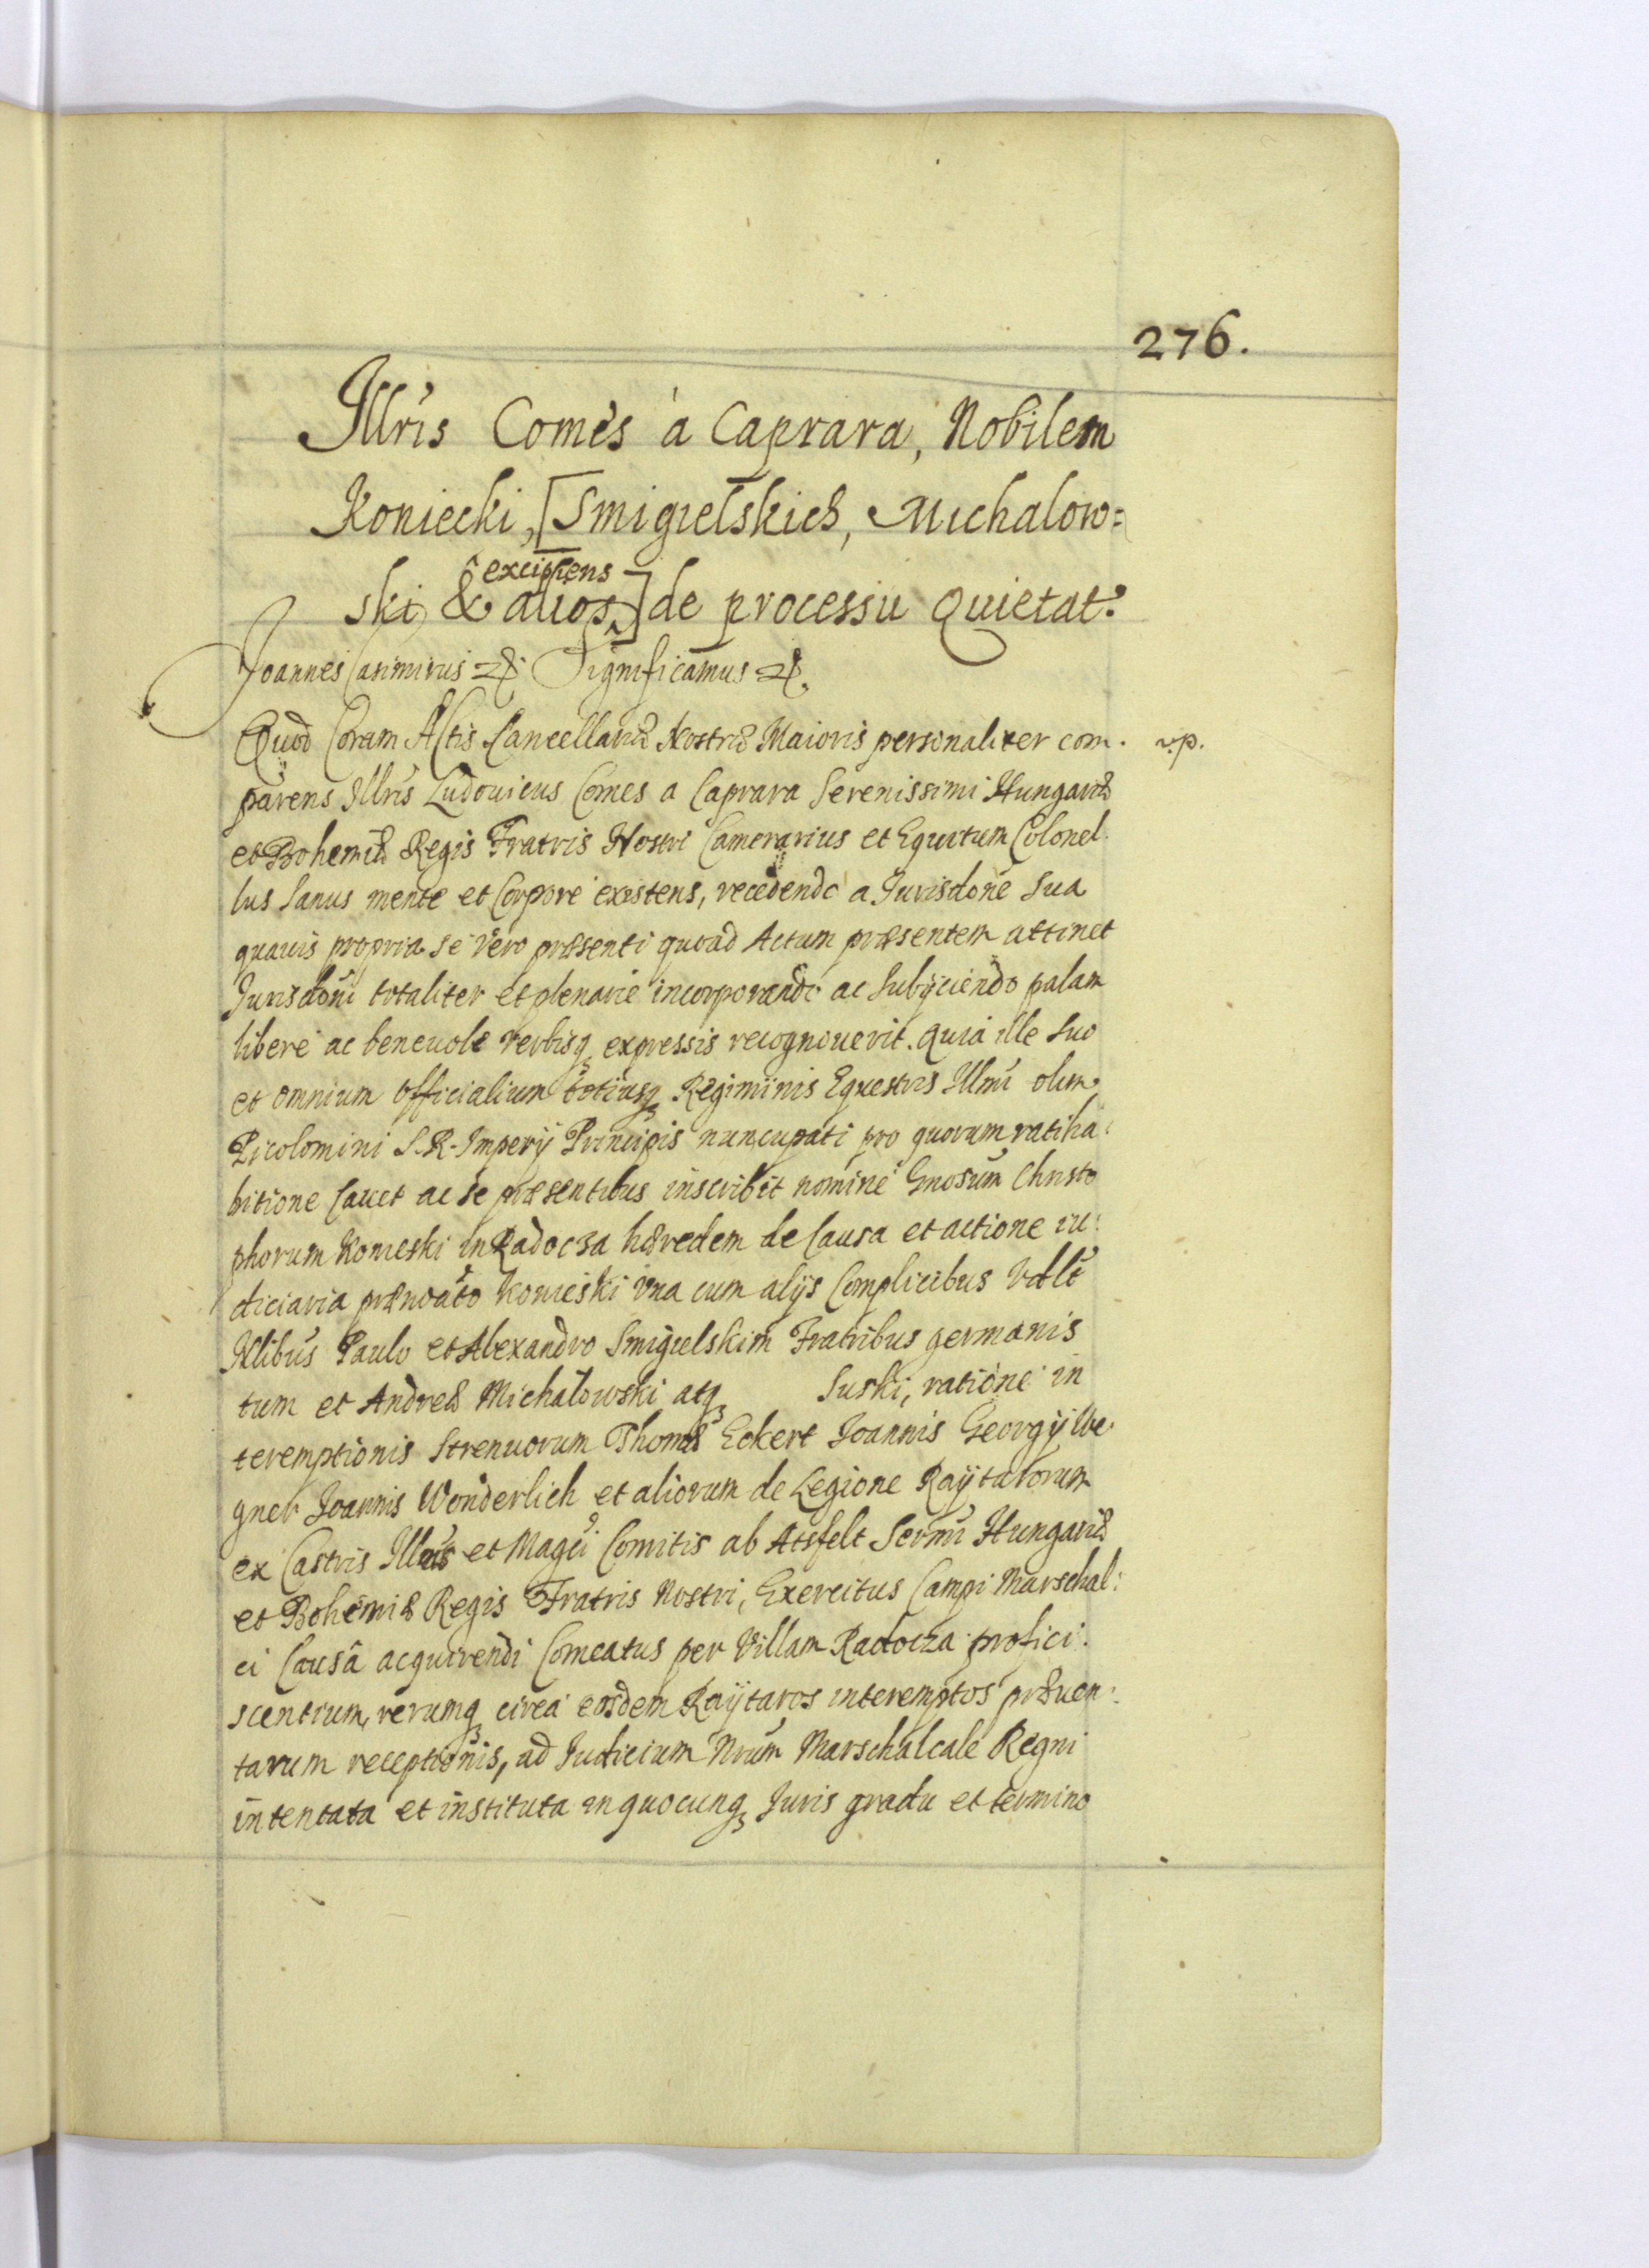 276.
Illris Comes à Caprara, Nobilem
Koniecki, [Smigielskich, Michalow=
excipiens
ski & alios] de processu Quietat.
Joannes Casimirus &. Significamus &.
Quod Coram Actis Cancellariæ Nostræ Maioris personaliter com. r.p.
parens Illris Ludouicus Comes a Caprara Serenissimi Hungariæ
et Bohemiæ Regis Fratris Nostri Camerarius et Equitum Colonel.
lus Sanus mente et Corpore existens, recedendo a Jurisdone sua
quauis propria se vero præsenti quoad Actum præsentem attinet
Jurisdoni totaliter et plenarie incorporando ac Subijciendo palam
libere ac beneuole verbisq expressis recognouerit. Quia ille suo
et omnium officialium totiusq Regiminis Equestris Illmi olim
Picolomini S.R. Imperij Principis nuncupati pro quorum ratiha:
bitione Cauet ac se præsentibus inscribit nomine Gnosum Christo
phorum Konieski in Radocza hæredem de Causa et actione iu:
diciaria prænoato Konieski vna cum alijs Complicibus Vdlt
Nlibus Paulo et Alexandro Smigielskim Fratribus germanis
tum et Andreæ Michalowski atq Suski, ratione in
teremptionis Strenuorum Thomæ Eckert Joannis Georgij We.
gner Joannis Wonderlich et aliorum de Legione Raytarorum
ex Castris Illris et Magci Comitis ab Atsfelt Sermi Hungariæ
et Bohemiæ Regis Fratris Nostri, Exercitus Campi Marschal:
ci Causâ acquirendi Comeatus per Villam Radocza profici:
scentium, rerumq circa eosdem Raytaros interemptos præuen:
tarum receptionis, ad Judicium Nrum Marschalcale Regni
intentata et instituta in quocunq Juris gradu et termino